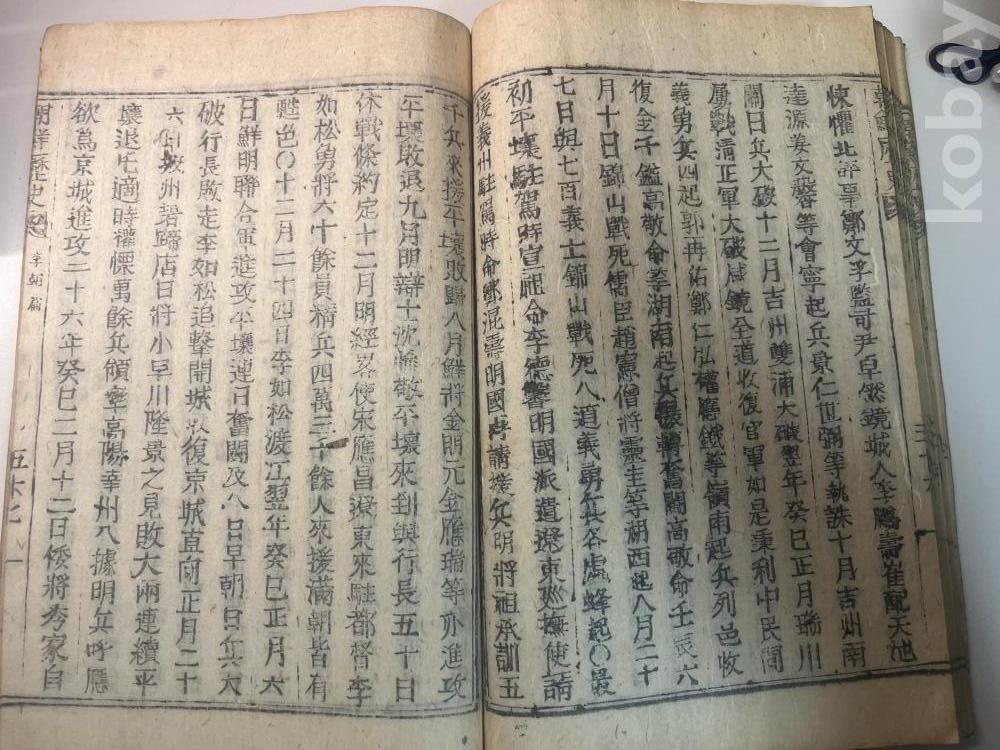 悚懼北評事鄭文孚監司尹卓然鏡城人李鵬壽崔配天池
達源姜文馨等會寧起兵景仁世弼等執誅十月吉州南
關日兵大破十二月吉州雙浦大破翌年癸巳正月瑞川
屢戰清正軍大破咸鏡全道收復官軍如是棄利中民間
義勇兵四起郭再佑鄭仁弘權應銖等嶺南起兵列邑收
復金千鎰高敬命等湖南起兵轉奮鬪高敬命壬辰六
月十日錦山戰死儒臣趙憲僧將靈圭等湖西起八月二十
七日與七百義士錦山戰死八道義勇兵各處蜂起○最
初平壤駐駕時宣祖命李德馨明國派遣遼東巡撫使請
援義州駐駕時命鄭混壽明國再請援兵明將祖承訓五
千兵來援平壤敗歸八月鮮將金明元金應瑞等亦進攻
平壤敗退九月明辯士沈惟敬平壤來到與行長五十日
休戰條約定十二月明經畧使宋應昌遼東來駐都督李
如松勇將六十餘員精兵四萬三千餘人來援滿朝皆有
甦色○十二月二十四日李如松渡江翌年癸巳正月六
日鮮明聯合軍進攻平壤連日奮鬪及八日早朝日兵大
破行長敗走李如松追擊開城收復京城直向正月二十
六日坡州碧蹄店日將小早川隆景之見敗大雨連續平
壤退屯適時權慄萬餘兵領率高陽幸州入據明兵呼應
欲爲京城進攻二十六年癸巳二月十二日倭將秀家自
朝鮮歷史
李朝篇
五十七
kobay